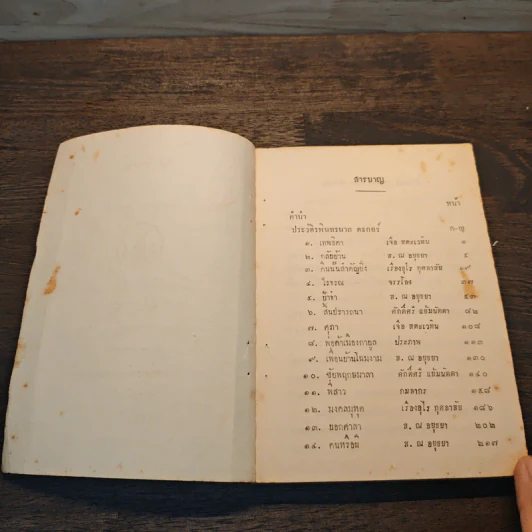 สารบาญ
หน้า
คำนำ
ประวัติรพินทรนาถ ตะกอร์ ก-ญ
๑. เทพธิดา เจือ สตะเวทิน ๑
๒. กลับบ้าน ส. ณ อยุธยา
๓. เรืองอุไร กุศลาสัย ๑๙
๔. วิจรณ์ จรรโลง ๓๗
๕. ย้าจ๋า ส. ณ อยุธยา ๕๓
๖. สินธ์วารถนา ศักดิ์ศรี แย้มนัดดา ๘๒
๗. ศุภา เจือ สตะเวทิน ๑๐๘
๘. พ่อค้าเมืองกาบุล ประภาพ ๑๑๓
๙. เพื่อนบ้านโฉมงาม ส. ณ อยุธยา ๑๓๐
๑๐. ชัยพฤกษมาลา ศักดิ์ศรี แย้มนัดดา ๑๔๐
๑๑. พี่สาว กมลากร ๑๕๘
๑๒. มงคลมุหุต เรืองอุไร กุศลาสัย ๑๘๖
๑๓. นอกศาลา ส. ณ อยุธยา ๒๐๒
๑๔. คนทรัอม ส. ณ อยุธยา ๒๑๗